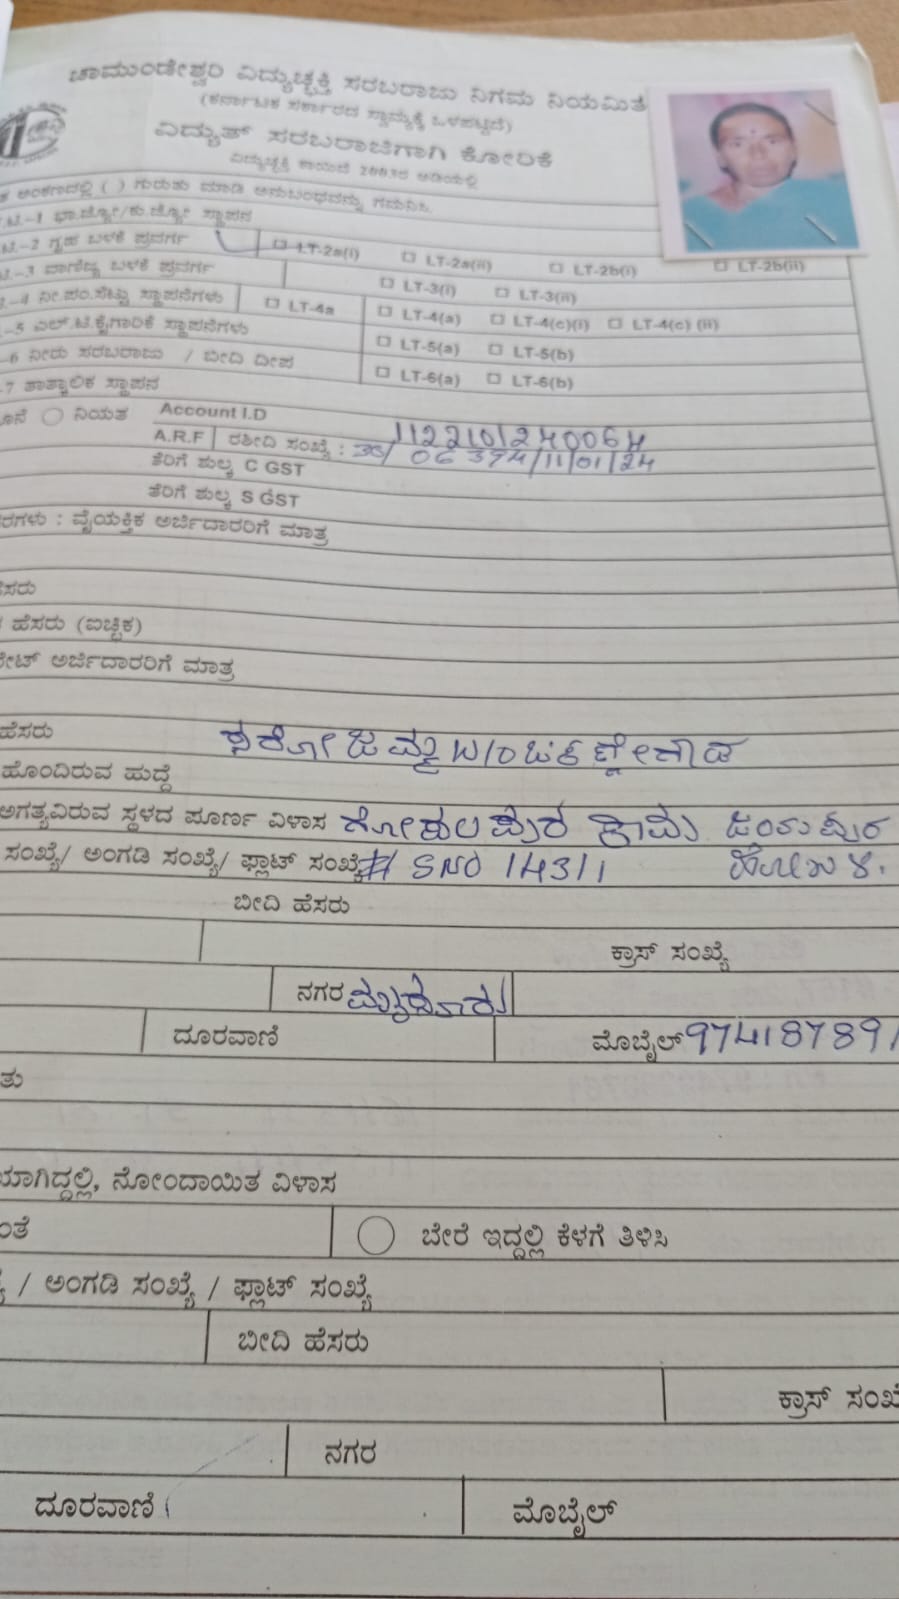 ಚಾಮುಂಡೇಶ್ವರಿ ವಿದ್ಯುಚ್ಛಕ್ತಿ ಸರಬರಾಜು ನಿಗಮ ನಿಯಮಿತ
(ಕರ್ನಾಟಕ ಸರ್ಕಾರದ ಸ್ವಾಮ್ಯಕ್ಕೆ ಒಳಪಟ್ಟಿದೆ)
ವಿದ್ಯುತ್ ಸರಬರಾಜಿಗಾಗಿ ಕೋರಿಕೆ
ವಿದ್ಯುಚ್ಛಕ್ತಿ ಕಾಯಿದೆ 2003ರ ಅಡಿಯಲ್ಲಿ
ಅಂಕಣದಲ್ಲಿ ( ) ಗುರುತು ಮಾಡಿ ಅನುಬಂಧವನ್ನು ಗಮನಿಸಿ.
.ಟಿ.-1 ಭಾ.ಜ್ಯೋ/ಕು.ಜ್ಯೋ ಸ್ಥಾಪನ
ಟಿ.-2 ಗೃಹ ಬಳಕೆ ಪ್ರವರ್ಗ LT-2a(i) LT-2a(ii) LT-2b(i) LT-2b(ii)
.-3 ವಾಣಿಜ್ಯ ಬಳಕೆ ಪ್ರವರ್ಗ LT-3(i) LT-3(ii)
.-4 ನೀ.ಪಂ.ಸೆಟ್ಟು ಸ್ಥಾಪನೆಗಳು LT-4a LT-4(a) LT-4(c)(i) LT-4(c) (ii)
-5 ಎಲ್.ಟಿ.ಕೈಗಾರಿಕೆ ಸ್ಥಾಪನೆಗಳು LT-5(a) LT-5(b)
-6 ನೀರು ಸರಬರಾಜು / ಬೀದಿ ದೀಪ LT-6(a) LT-6(b)
-7 ತಾತ್ಕಾಲಿಕ ಸ್ಥಾಪನ
ನಿಯತ Account I.D 1122101240064
A.R.F ರಶೀದಿ ಸಂಖ್ಯೆ : 06 394/11/01/24
ತೆರಿಗೆ ಶುಲ್ಕ C GST
ತೆರಿಗೆ ಶುಲ್ಕ S GST
ರಗಳು : ವೈಯಕ್ತಿಕ ಅರ್ಜಿದಾರರಿಗೆ ಮಾತ್ರ
ಹೆಸರು
ಹೆಸರು (ಐಚ್ಛಿಕ)
ರೇಟ್ ಅರ್ಜಿದಾರರಿಗೆ ಮಾತ್ರ
ಹೆಸರು ಸರೋಜಮ್ಮ W/O
ಹೊಂದಿರುವ ಹುದ್ದೆ
ಅಗತ್ಯವಿರುವ ಸ್ಥಳದ ಪೂರ್ಣ ವಿಳಾಸ ಗ್ರಾಮ ಜಯಪುರ
ಸಂಖ್ಯೆ/ ಅಂಗಡಿ ಸಂಖ್ಯೆ/ ಫ್ಲಾಟ್ ಸಂಖ್ಯೆ # SNO 143/1 ಹೋಬಳಿ.
ಬೀದಿ ಹೆಸರು
ಕ್ರಾಸ್ ಸಂಖ್ಯೆ
ನಗರ ಮೈಸೂರು
ದೂರವಾಣಿ ಮೊಬೈಲ್ 974187891
ತು
ಯಾಗಿದ್ದಲ್ಲಿ, ನೋಂದಾಯಿತ ವಿಳಾಸ
ಂತೆ ಬೇರೆ ಇದ್ದಲ್ಲಿ ಕೆಳಗೆ ತಿಳಿಸಿ
/ ಅಂಗಡಿ ಸಂಖ್ಯೆ / ಫ್ಲಾಟ್ ಸಂಖ್ಯೆ
ಬೀದಿ ಹೆಸರು
ಕ್ರಾಸ್ ಸಂಖ್ಯೆ
ನಗರ
ದೂರವಾಣಿ ಮೊಬೈಲ್